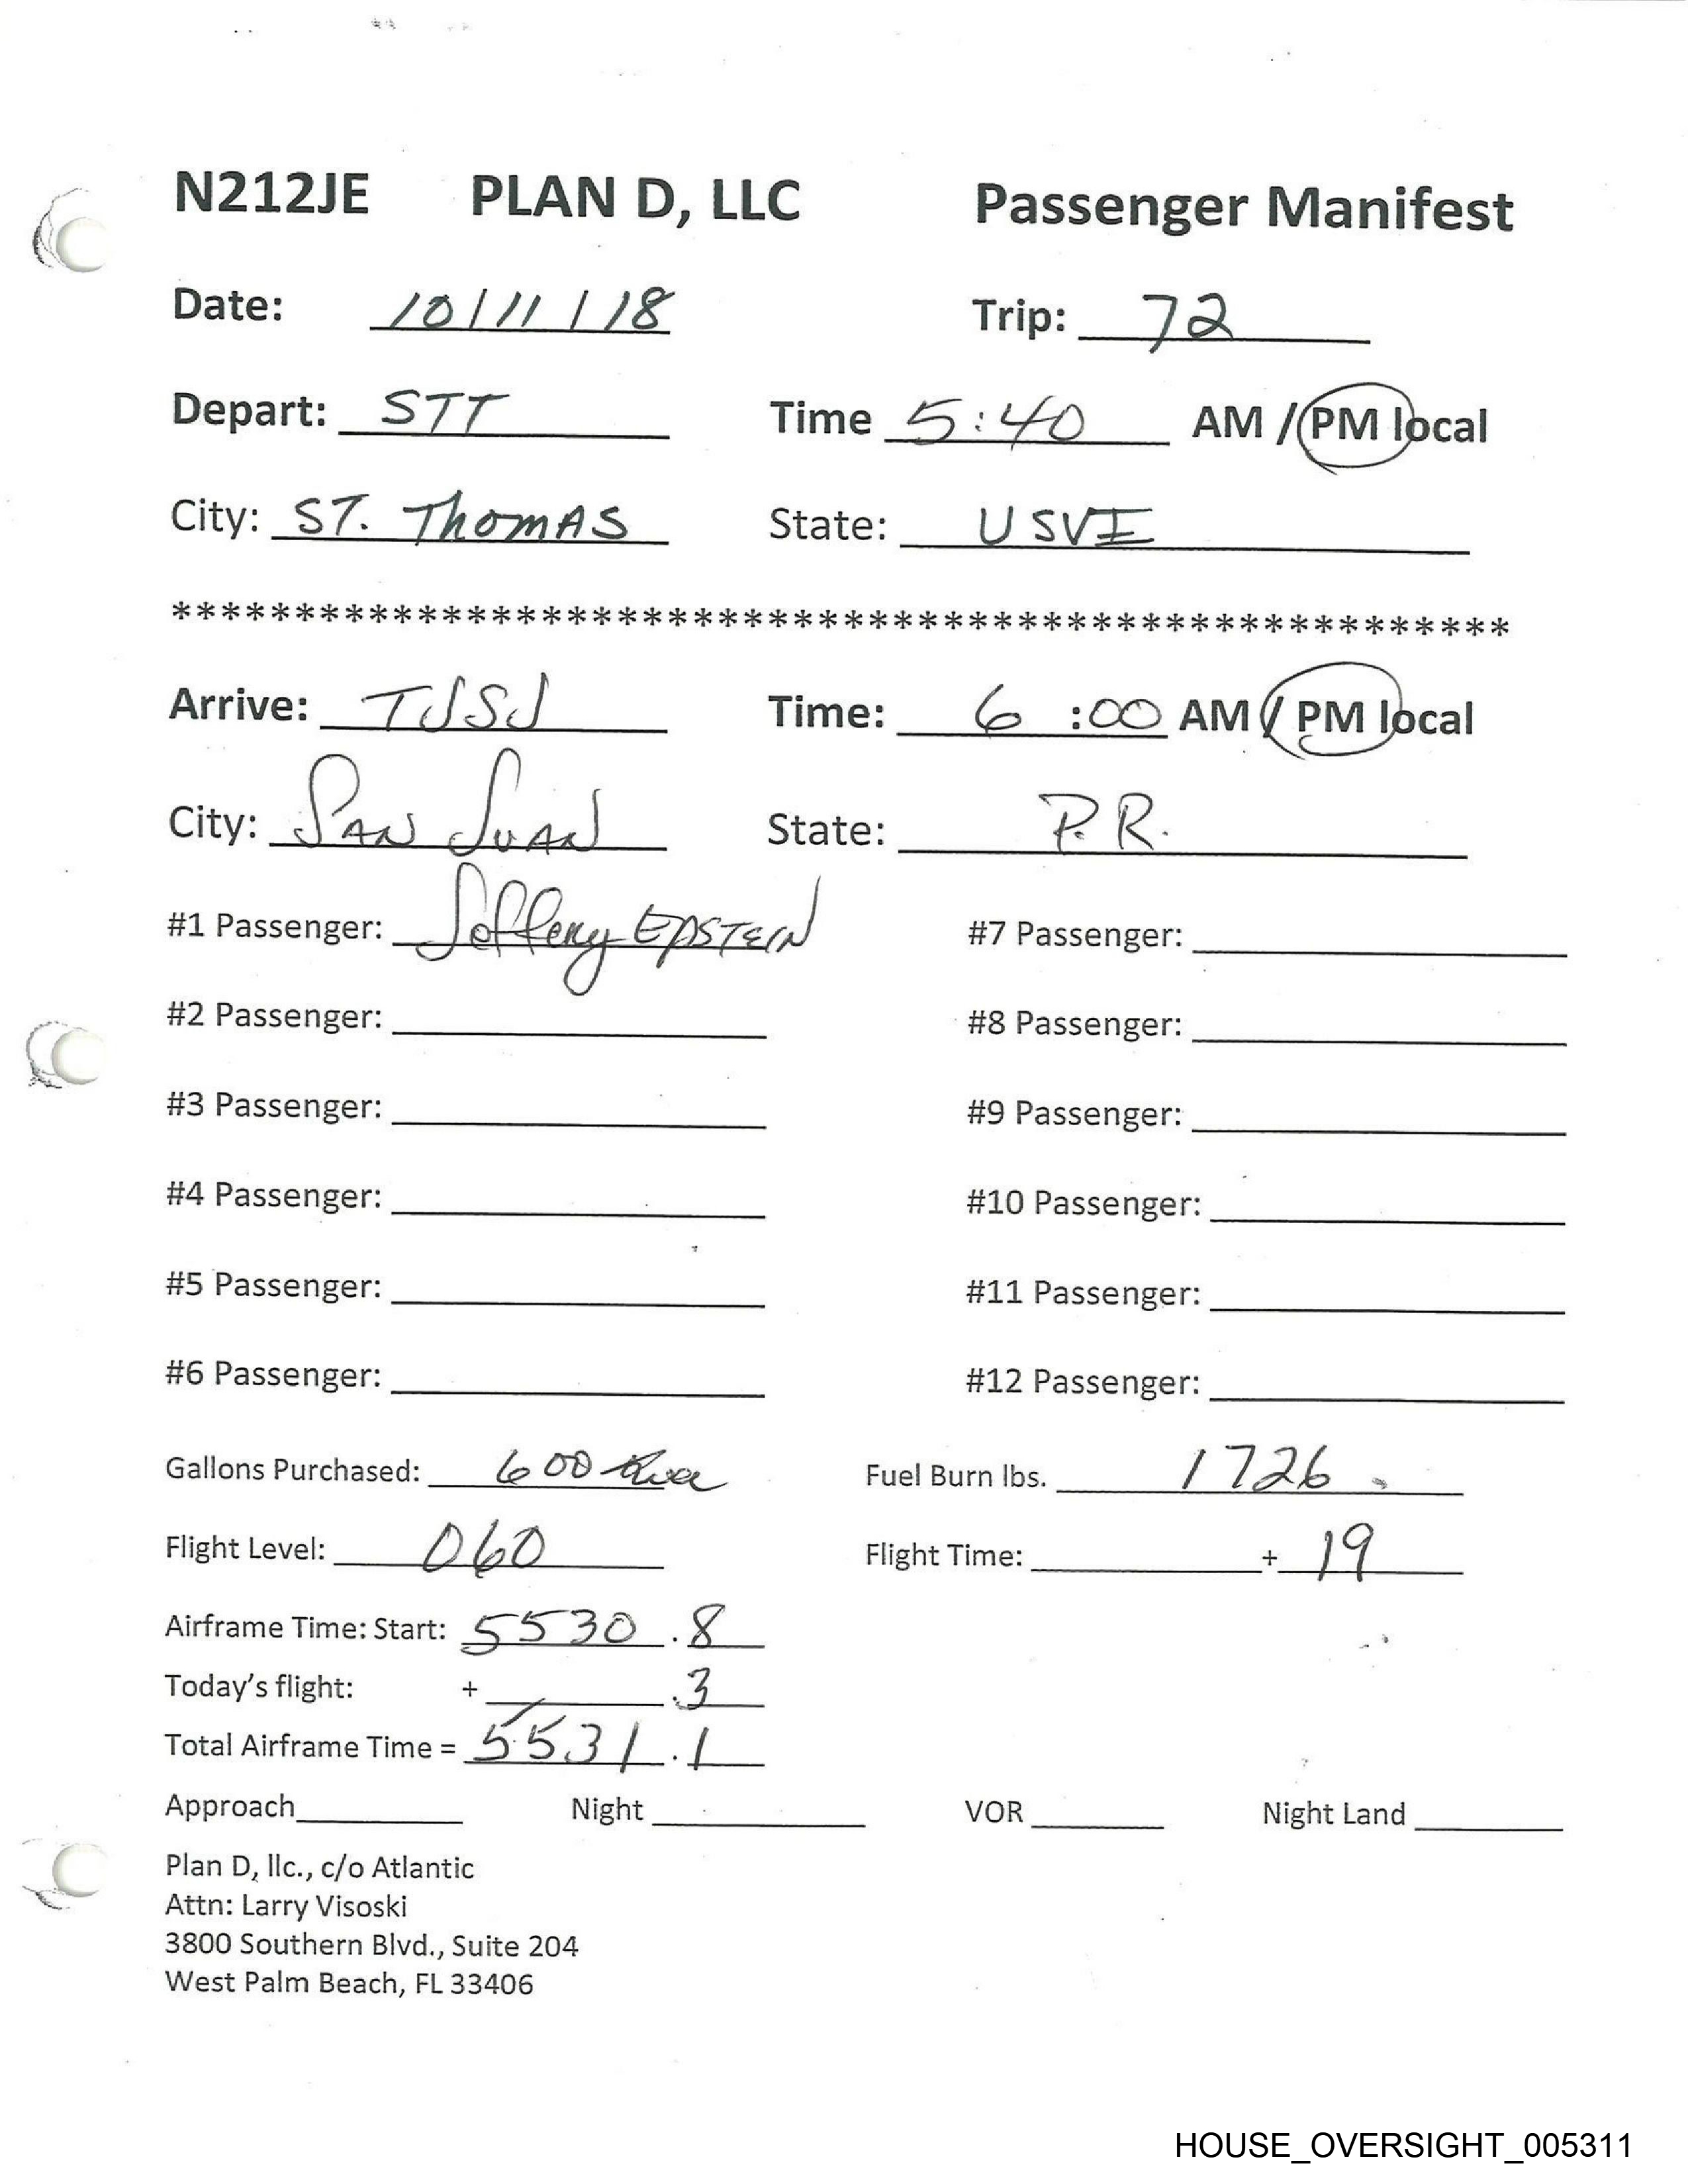 N212JE PLAN D, LLC Passenger Manifest
Date: 10/11/18 Trip: 72
Depart: STT Time 5:40 AM / PM local
City: ST. Thomas State: USVI
*******************************************************
Arrive: TJSJ Time: 6:00 AM / PM local
City: San Juan State: P.R.
#1 Passenger: Jeffery Epstein #7 Passenger:
#2 Passenger: #8 Passenger:
#3 Passenger: #9 Passenger:
#4 Passenger: #10 Passenger:
#5 Passenger: #11 Passenger:
#6 Passenger: #12 Passenger:
Gallons Purchased: 600 Fuel Burn lbs. 1726
Flight Level: 060 Flight Time: + 19
Airframe Time: Start: 5530.8
Today's flight: + .3
Total Airframe Time = 5531.1
Approach Night VOR Night Land
Plan D, llc., c/o Atlantic
Attn: Larry Visoski
3800 Southern Blvd., Suite 204
West Palm Beach, FL 33406
HOUSE_OVERSIGHT_005311